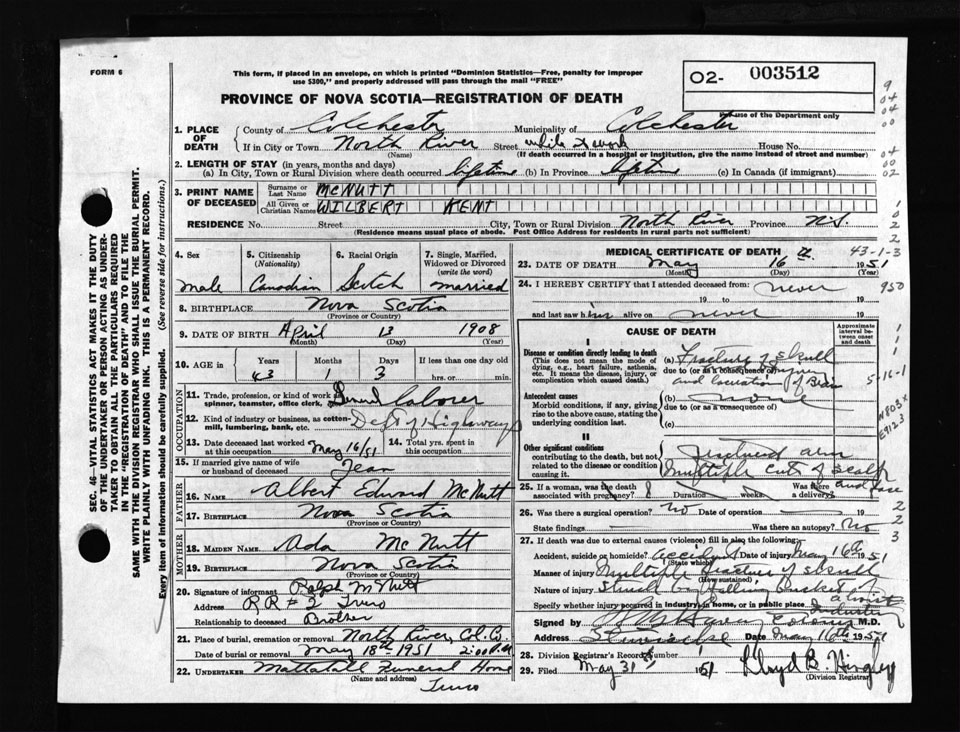 FORM 6
This form, if placed in an envelope, on which is printed "Dominion Statistics—Free, penalty for improper
use $300," and properly addressed will pass through the mail "FREE"
O2- 003512
For use of the Department only
PROVINCE OF NOVA SCOTIA—REGISTRATION OF DEATH
1. PLACE OF DEATH
County of Colchester Municipality of Colchester
If in City or Town North River Street while at work House No.
(Name) (If death occurred in a hospital or institution, give the name instead of street and number)
2. LENGTH OF STAY (in years, months and days)
(a) In City, Town or Rural Division where death occurred lifetime (b) In Province lifetime (c) In Canada (if immigrant)
3. PRINT NAME OF DECEASED
Surname or Last Name MCNUTT
All Given or Christian Names WILBERT KENT
RESIDENCE No. Street City, Town or Rural Division North River Province N.S.
(Residence means usual place of abode. Post Office Address for residents in rural parts not sufficient)
4. Sex
male
5. Citizenship (Nationality)
Canadian
6. Racial Origin
Scotch
7. Single, Married, Widowed or Divorced (write the word)
married
8. BIRTHPLACE Nova Scotia
(Province or Country)
9. DATE OF BIRTH April 13 1908
(Month) (Day) (Year)
10. AGE IN Years Months Days If less than one day old
43 1 3 hrs. or min.
OCCUPATION
11. Trade, profession, or kind of work as spinner, teamster, office clerk, labourer
12. Kind of industry or business, as cotton-mill, lumbering, bank, etc. Dept of Highways
13. Date deceased last worked at this occupation May 16/51
14. Total yrs. spent in this occupation
15. If married give name of wife or husband of deceased Jean
FATHER
16. NAME Albert Edward McNutt
17. BIRTHPLACE Nova Scotia
(Province or Country)
MOTHER
18. MAIDEN NAME Ada McNutt
19. BIRTHPLACE Nova Scotia
(Province or Country)
20. Signature of informant Ralph McNutt
Address RR #2 Truro
Relationship to deceased Brother
21. Place of burial, cremation or removal North River, Col. Co.
Date of burial or removal May 18th 1951 2:00 P.M.
22. UNDERTAKER Mattatall Funeral Home
(Name and address)
Truro
MEDICAL CERTIFICATE OF DEATH
43-1-3
23. DATE OF DEATH May 16 th 1951
(Month) (Day) (Year)
24. I HEREBY CERTIFY that I attended deceased from never
19 to 19
and last saw him alive on never 19
950
CAUSE OF DEATH
Approximate interval between onset and death
I
Disease or condition directly leading to death
(This does not mean the mode of dying, e.g., heart failure, asthenia, etc. It means the disease, injury, or complication which caused death.)
(a) Fracture of skull
due to (or as a consequence of)
and laceration of Brain
5-16-1
Antecedent causes
Morbid conditions, if any, giving rise to the above cause, stating the underlying condition last.
(b) none
due to (or as a consequence of)
(c)
N803X
E912.3
II
Other significant conditions
contributing to the death, but not related to the disease or condition causing it.
fractured arm
multiple cuts of scalp
and face
25. If a woman, was the death associated with pregnancy? Duration weeks Was there a delivery?
26. Was there a surgical operation? no Date of operation
State findings Was there an autopsy? No
27. If death was due to external causes (violence) fill in also the following:
Accident, suicide or homicide? accident Date of injury May 16th 1951
(State which)
Manner of injury Multiple fracture of skull
(How sustained)
Nature of injury Struck by falling bucket of
a hoist
Specify whether injury occurred in industry, in home, or in public place Industry
Signed by Coroner M.D.
Address Stewiacke Date May 16th 1951
28. Division Registrar's Record Number
29. Filed May 31 1951 Lloyd B. Hingley
(Division Registrar)
SEC. 46—VITAL STATISTICS ACT MAKES IT THE DUTY
OF THE UNDERTAKER OR PERSON ACTING AS UNDER-
TAKER TO OBTAIN ALL THE PARTICULARS REQUIRED
IN THE "REGISTRATION OF DEATH" AND TO FILE THE
SAME WITH THE DIVISION REGISTRAR WHO SHALL ISSUE THE BURIAL PERMIT.
WRITE PLAINLY WITH UNFADING INK. THIS IS A PERMANENT RECORD.
Every item of information should be carefully supplied. (See reverse side for instructions.)